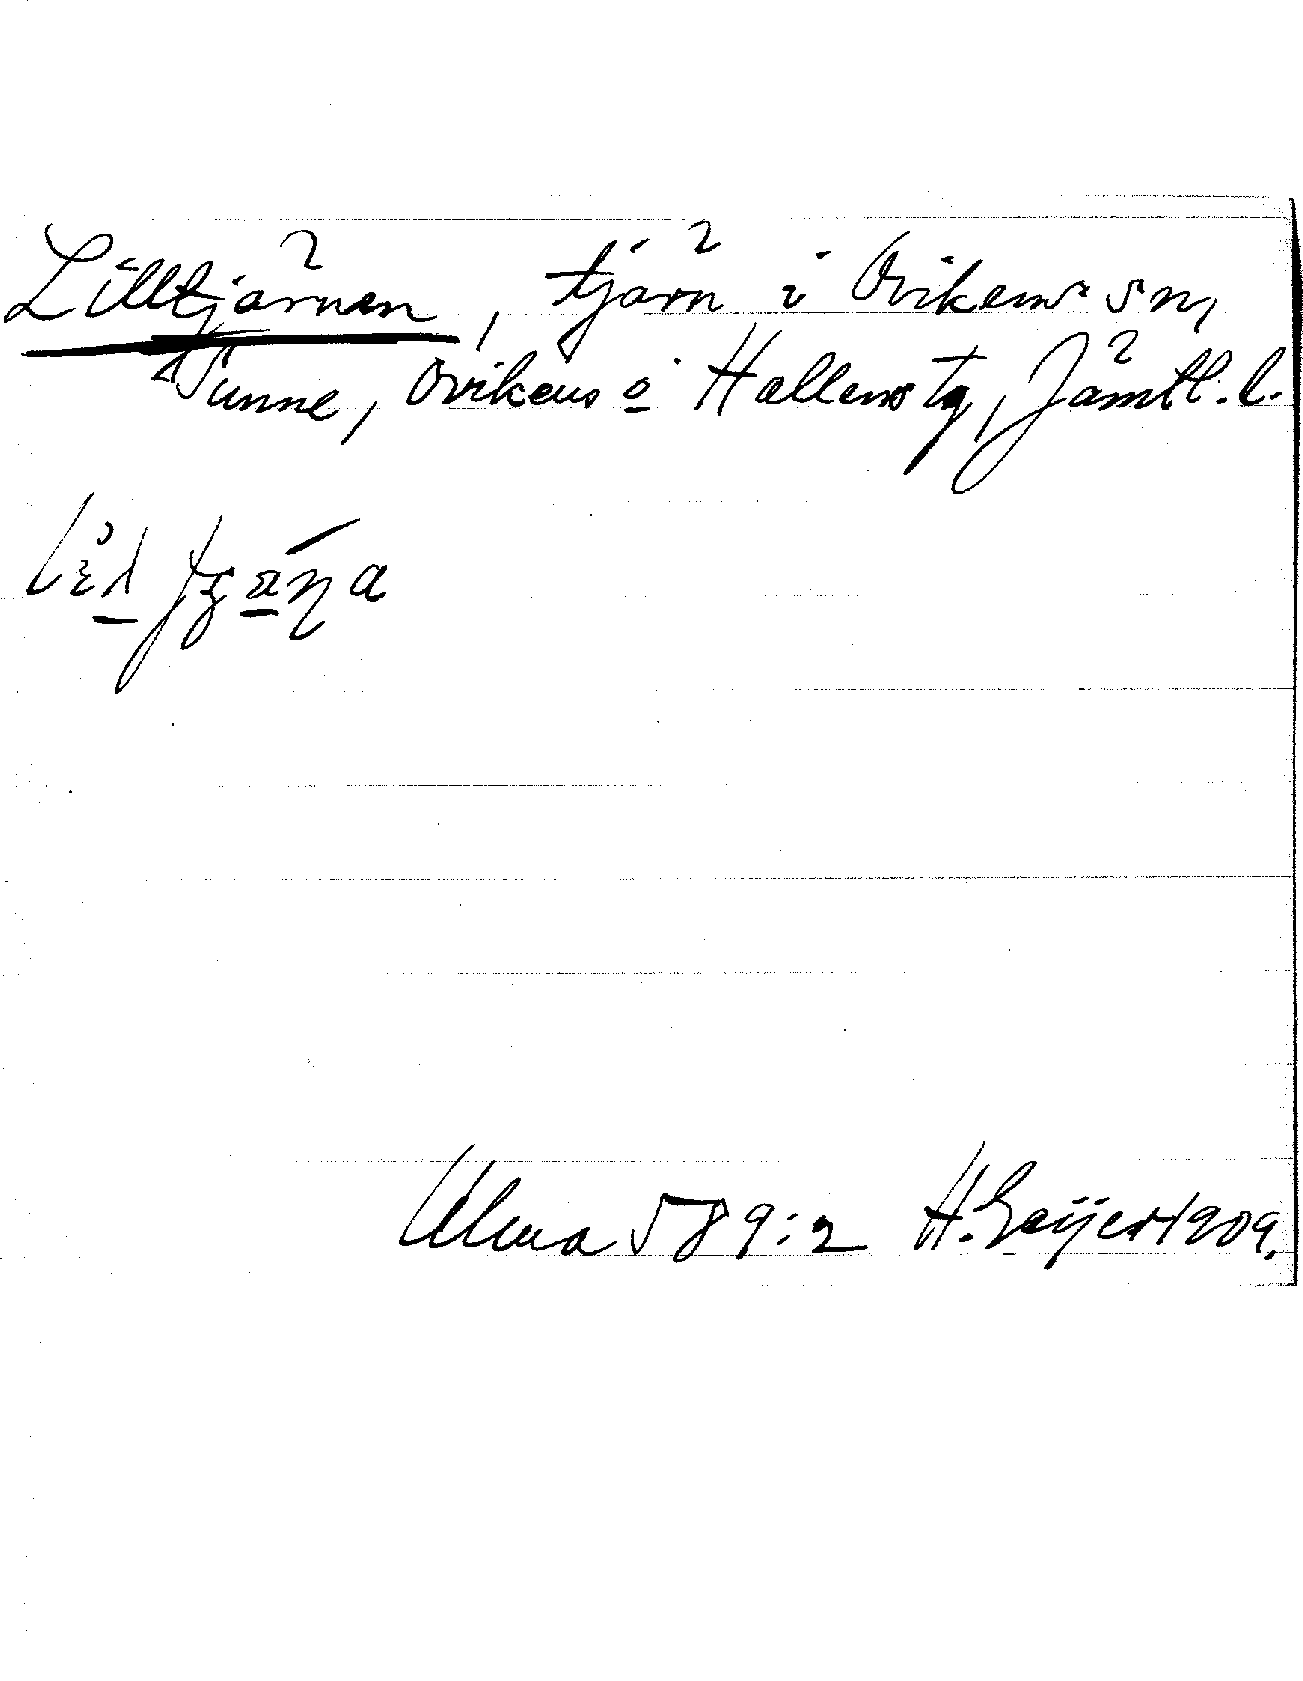 Lilltjärnen, tjärn i Ovikens sn,
Sunne, Ovikens o Hallens tg, Jämtl. l.
Ulma 589:2 H. Geijer 1909.